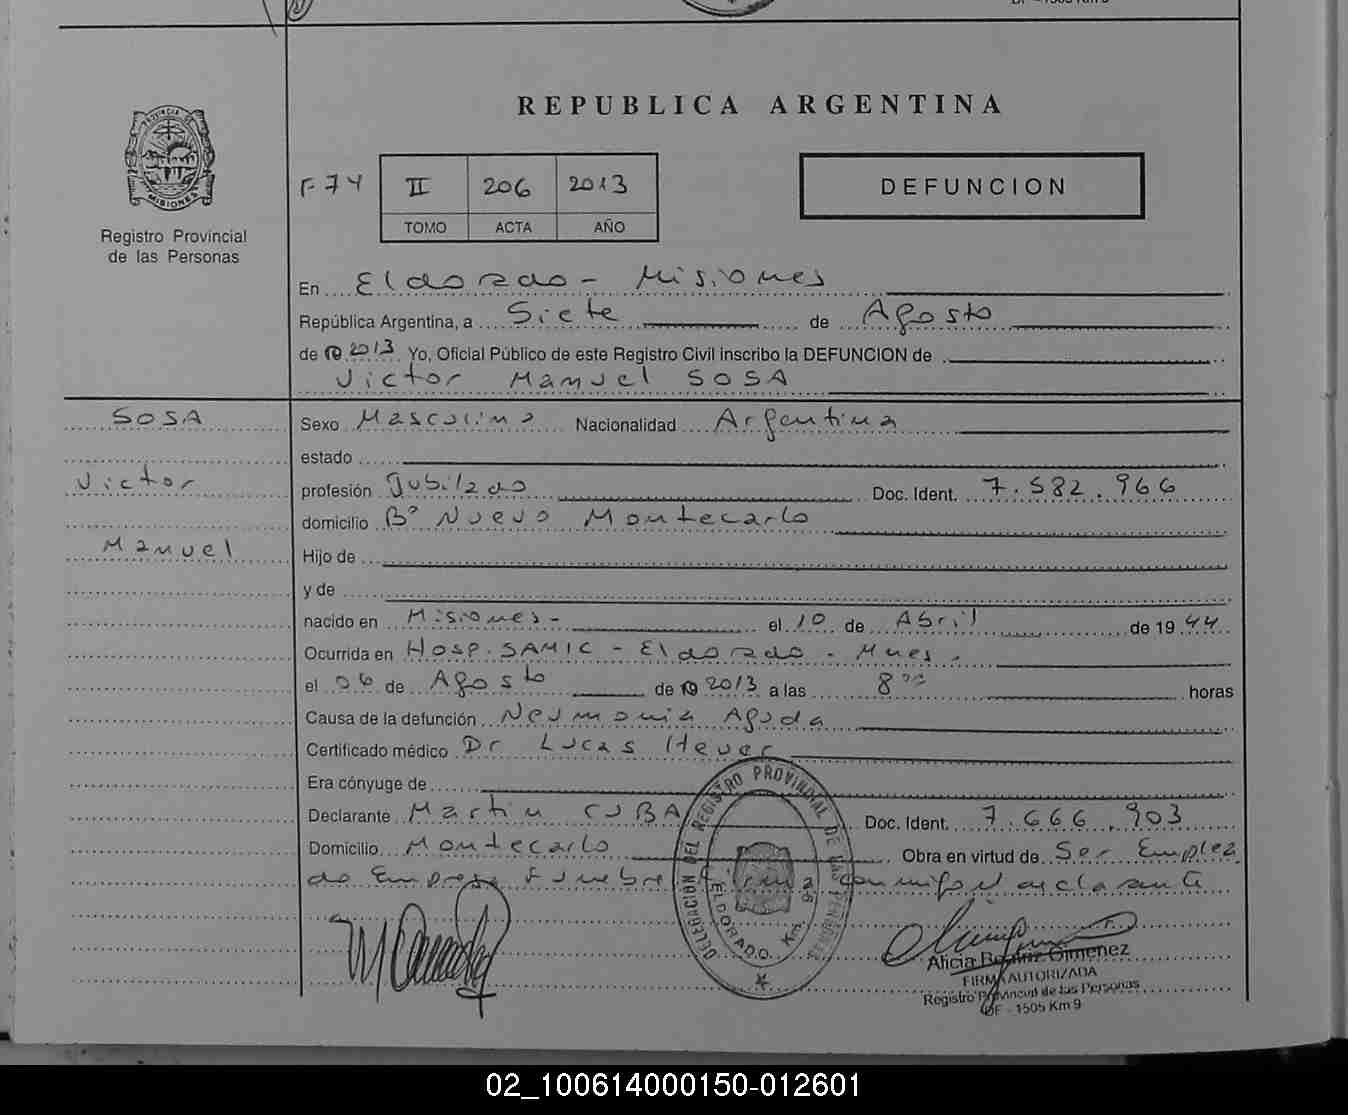 REPUBLICA ARGENTINA
PROVINCIA DE
MISIONES
Registro Provincial
de las Personas
F 74
II 206 2013
TOMO ACTA AÑO
DEFUNCION
En Eldorado - Misiones
República Argentina, a Siete de Agosto
de 2013 Yo, Oficial Público de este Registro Civil inscribo la DEFUNCION de
Victor Manuel SOSA
SOSA
Victor
Manuel
Sexo Masculino Nacionalidad Argentina
estado
profesión Jubilado Doc. Ident. 7.582.966
domicilio Bº Nuevo Montecarlo
Hijo de
y de
nacido en Misiones - el 10 de Abril de 19 44
Ocurrida en Hosp. SAMIC - Eldorado - Mnes.
el 06 de Agosto de 2013 a las 8 00 horas
Causa de la defunción Neumonia Aguda
Certificado médico Dr Lucas Heuer
Era cónyuge de
Declarante Martin CUBA Doc. Ident. 7.666.903
Domicilio Montecarlo Obra en virtud de Ser Emplea
do Empresa Funebre Firma conmigo el declarante
DELEGACION DEL REGISTRO PROVINCIAL DE LAS PERSONAS
ELDORADO Km.
Alicia Beatriz Gimenez
FIRMA AUTORIZADA
Registro Provincial de las Personas
DF - 1505 Km 9
02_100614000150-012601